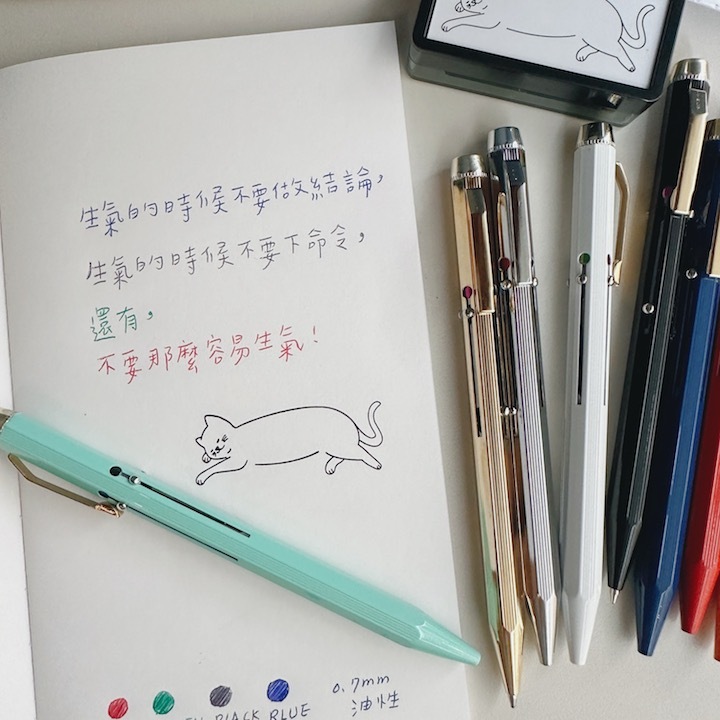 生氣的時候不要做結論，
生氣的時候不要下命令，
還有，
不要那麼容易生氣！
BLACK BLUE
0.7mm
油性